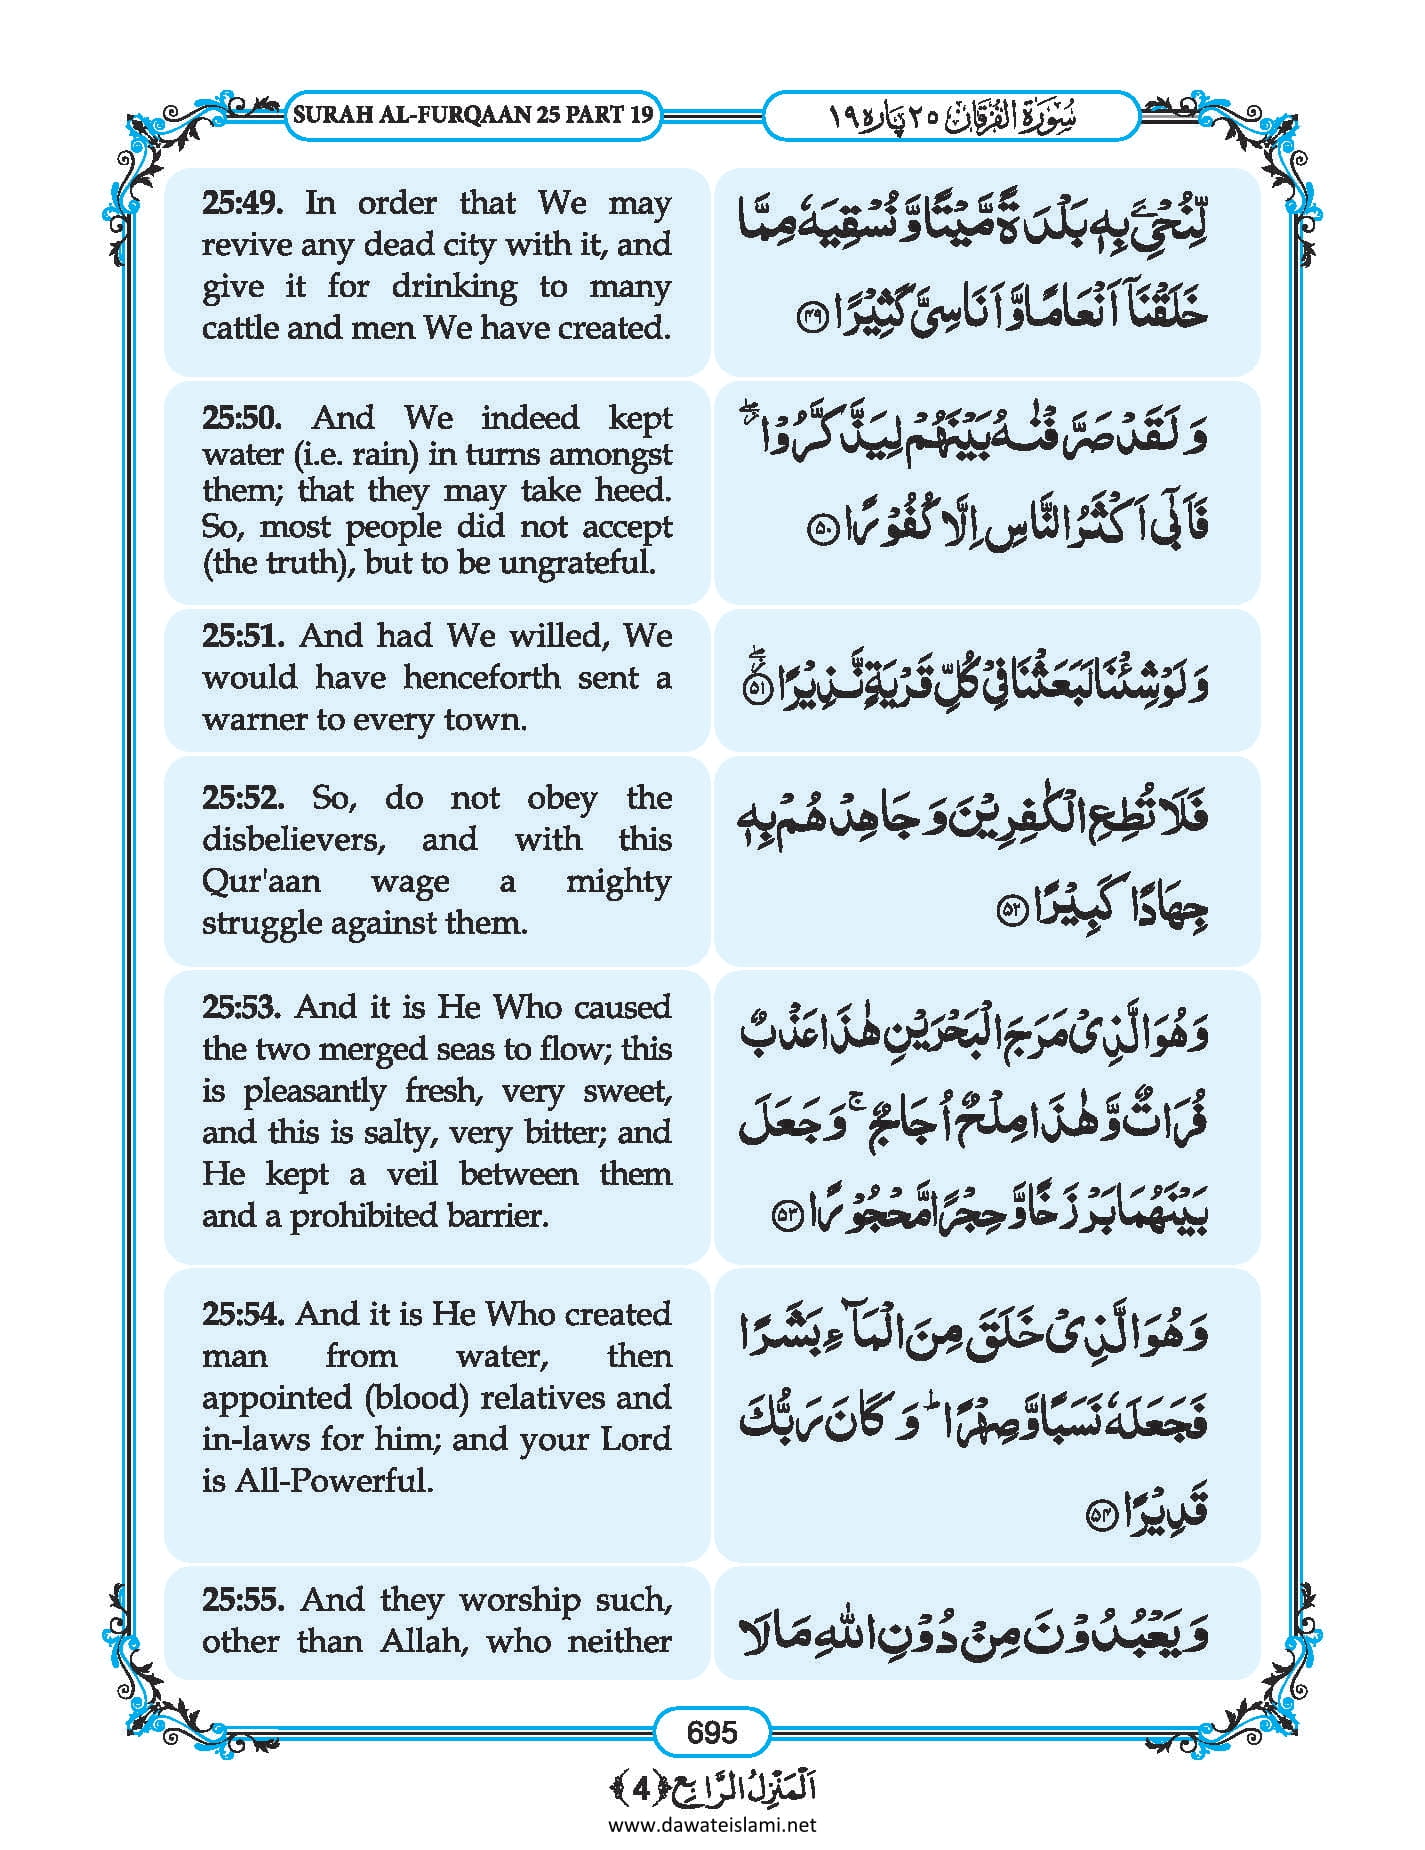 SURAH AL-FURQAAN 25 PART 19
سُوْرَةُ الْفُرْقَان ٢٥ پَارہ ١٩
25:49. In order that We may
revive any dead city with it, and
give it for drinking to many
cattle and men We have created.
لِّنُحْیَِۧ بِهٖ بَلْدَةً مَّیْتًا وَّ نُسْقِیَهٗ مِمَّا
خَلَقْنَاۤ اَنْعَامًا وَّ اَنَاسِیَّ كَثِیْرًا ﴿۴۹﴾
25:50. And We indeed kept
water (i.e. rain) in turns amongst
them; that they may take heed.
So, most people did not accept
(the truth), but to be ungrateful.
وَ لَقَدْ صَرَّفْنٰهُ بَیْنَهُمْ لِیَذَّكَّرُوْا ۖ٘
فَاَبٰۤی اَكْثَرُ النَّاسِ اِلَّا كُفُوْرًا ﴿۵۰﴾
25:51. And had We willed, We
would have henceforth sent a
warner to every town.
وَ لَوْ شِئْنَا لَبَعَثْنَا فِیْ كُلِّ قَرْیَةٍ نَّذِیْرًا ﴿۵۱﴾ۖ٘
25:52. So, do not obey the
disbelievers, and with this
Qur'aan wage a mighty
struggle against them.
فَلَا تُطِعِ الْكٰفِرِیْنَ وَ جَاهِدْهُمْ بِهٖ
جِهَادًا كَبِیْرًا ﴿۵۲﴾
25:53. And it is He Who caused
the two merged seas to flow; this
is pleasantly fresh, very sweet,
and this is salty, very bitter; and
He kept a veil between them
and a prohibited barrier.
وَ هُوَ الَّذِیْ مَرَجَ الْبَحْرَیْنِ هٰذَا عَذْبٌ
فُرَاتٌ وَّ هٰذَا مِلْحٌ اُجَاجٌ ۚ وَ جَعَلَ
بَیْنَهُمَا بَرْزَخًا وَّ حِجْرًا مَّحْجُوْرًا ﴿۵۳﴾
25:54. And it is He Who created
man from water, then
appointed (blood) relatives and
in-laws for him; and your Lord
is All-Powerful.
وَ هُوَ الَّذِیْ خَلَقَ مِنَ الْمَآءِ بَشَرًا
فَجَعَلَهٗ نَسَبًا وَّ صِهْرًا ؕ وَ كَانَ رَبُّكَ
قَدِیْرًا ﴿۵۴﴾
25:55. And they worship such,
other than Allah, who neither
وَ یَعْبُدُوْنَ مِنْ دُوْنِ اللّٰهِ مَا لَا
695
اَلْمَنْزِلُ الرَّابِع ﴿4﴾
www.dawateislami.net